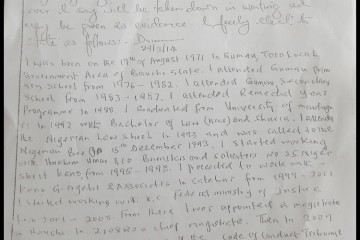 over I say will be taken down in writing and
may be given as evidence. I freely elect to
state as follows:-
I was born on the 19th of August 1971 in Gumau, Toro Local
Government Area of Bauchi State. I attended Gumau Prim
ary School from 1976 - 1982. I attended Gumau Secondary
School from 1983 - 1987. I attended Remedial year
Programme in 1988. I Graduated from University of
in 1992 Bachelor of Law (Hons) and Sharia. I attended
the Nigerian Law School in 1993 and was called to the
Nigerian Bar 15th December 1993. I started working
with Ibrahim Umar & Co Barristers and Solicitors No 35 Niger
Street Kano from 1995 - 1998. I
& Associates in from 1999 - 2001
I started working with Federal Ministry of Justice
in 2001 - 2005 from there I was appointed a magistrate
in Bauchi to chief magistrate. Then in 2007
of the Code of Conduct Tribunal